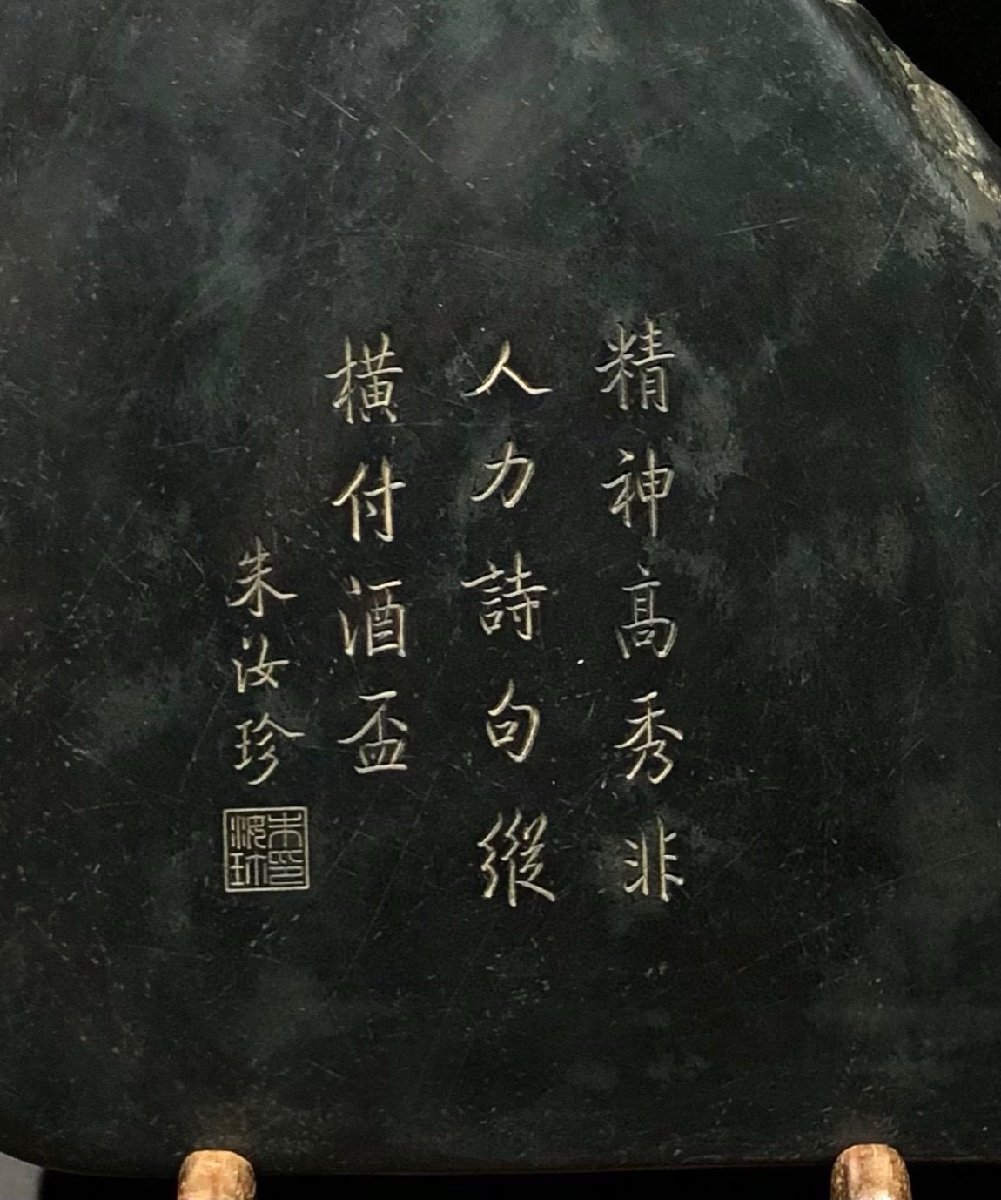 精神高秀非
人力詩句縱
橫付酒盃
朱汝珍
朱汝珍印